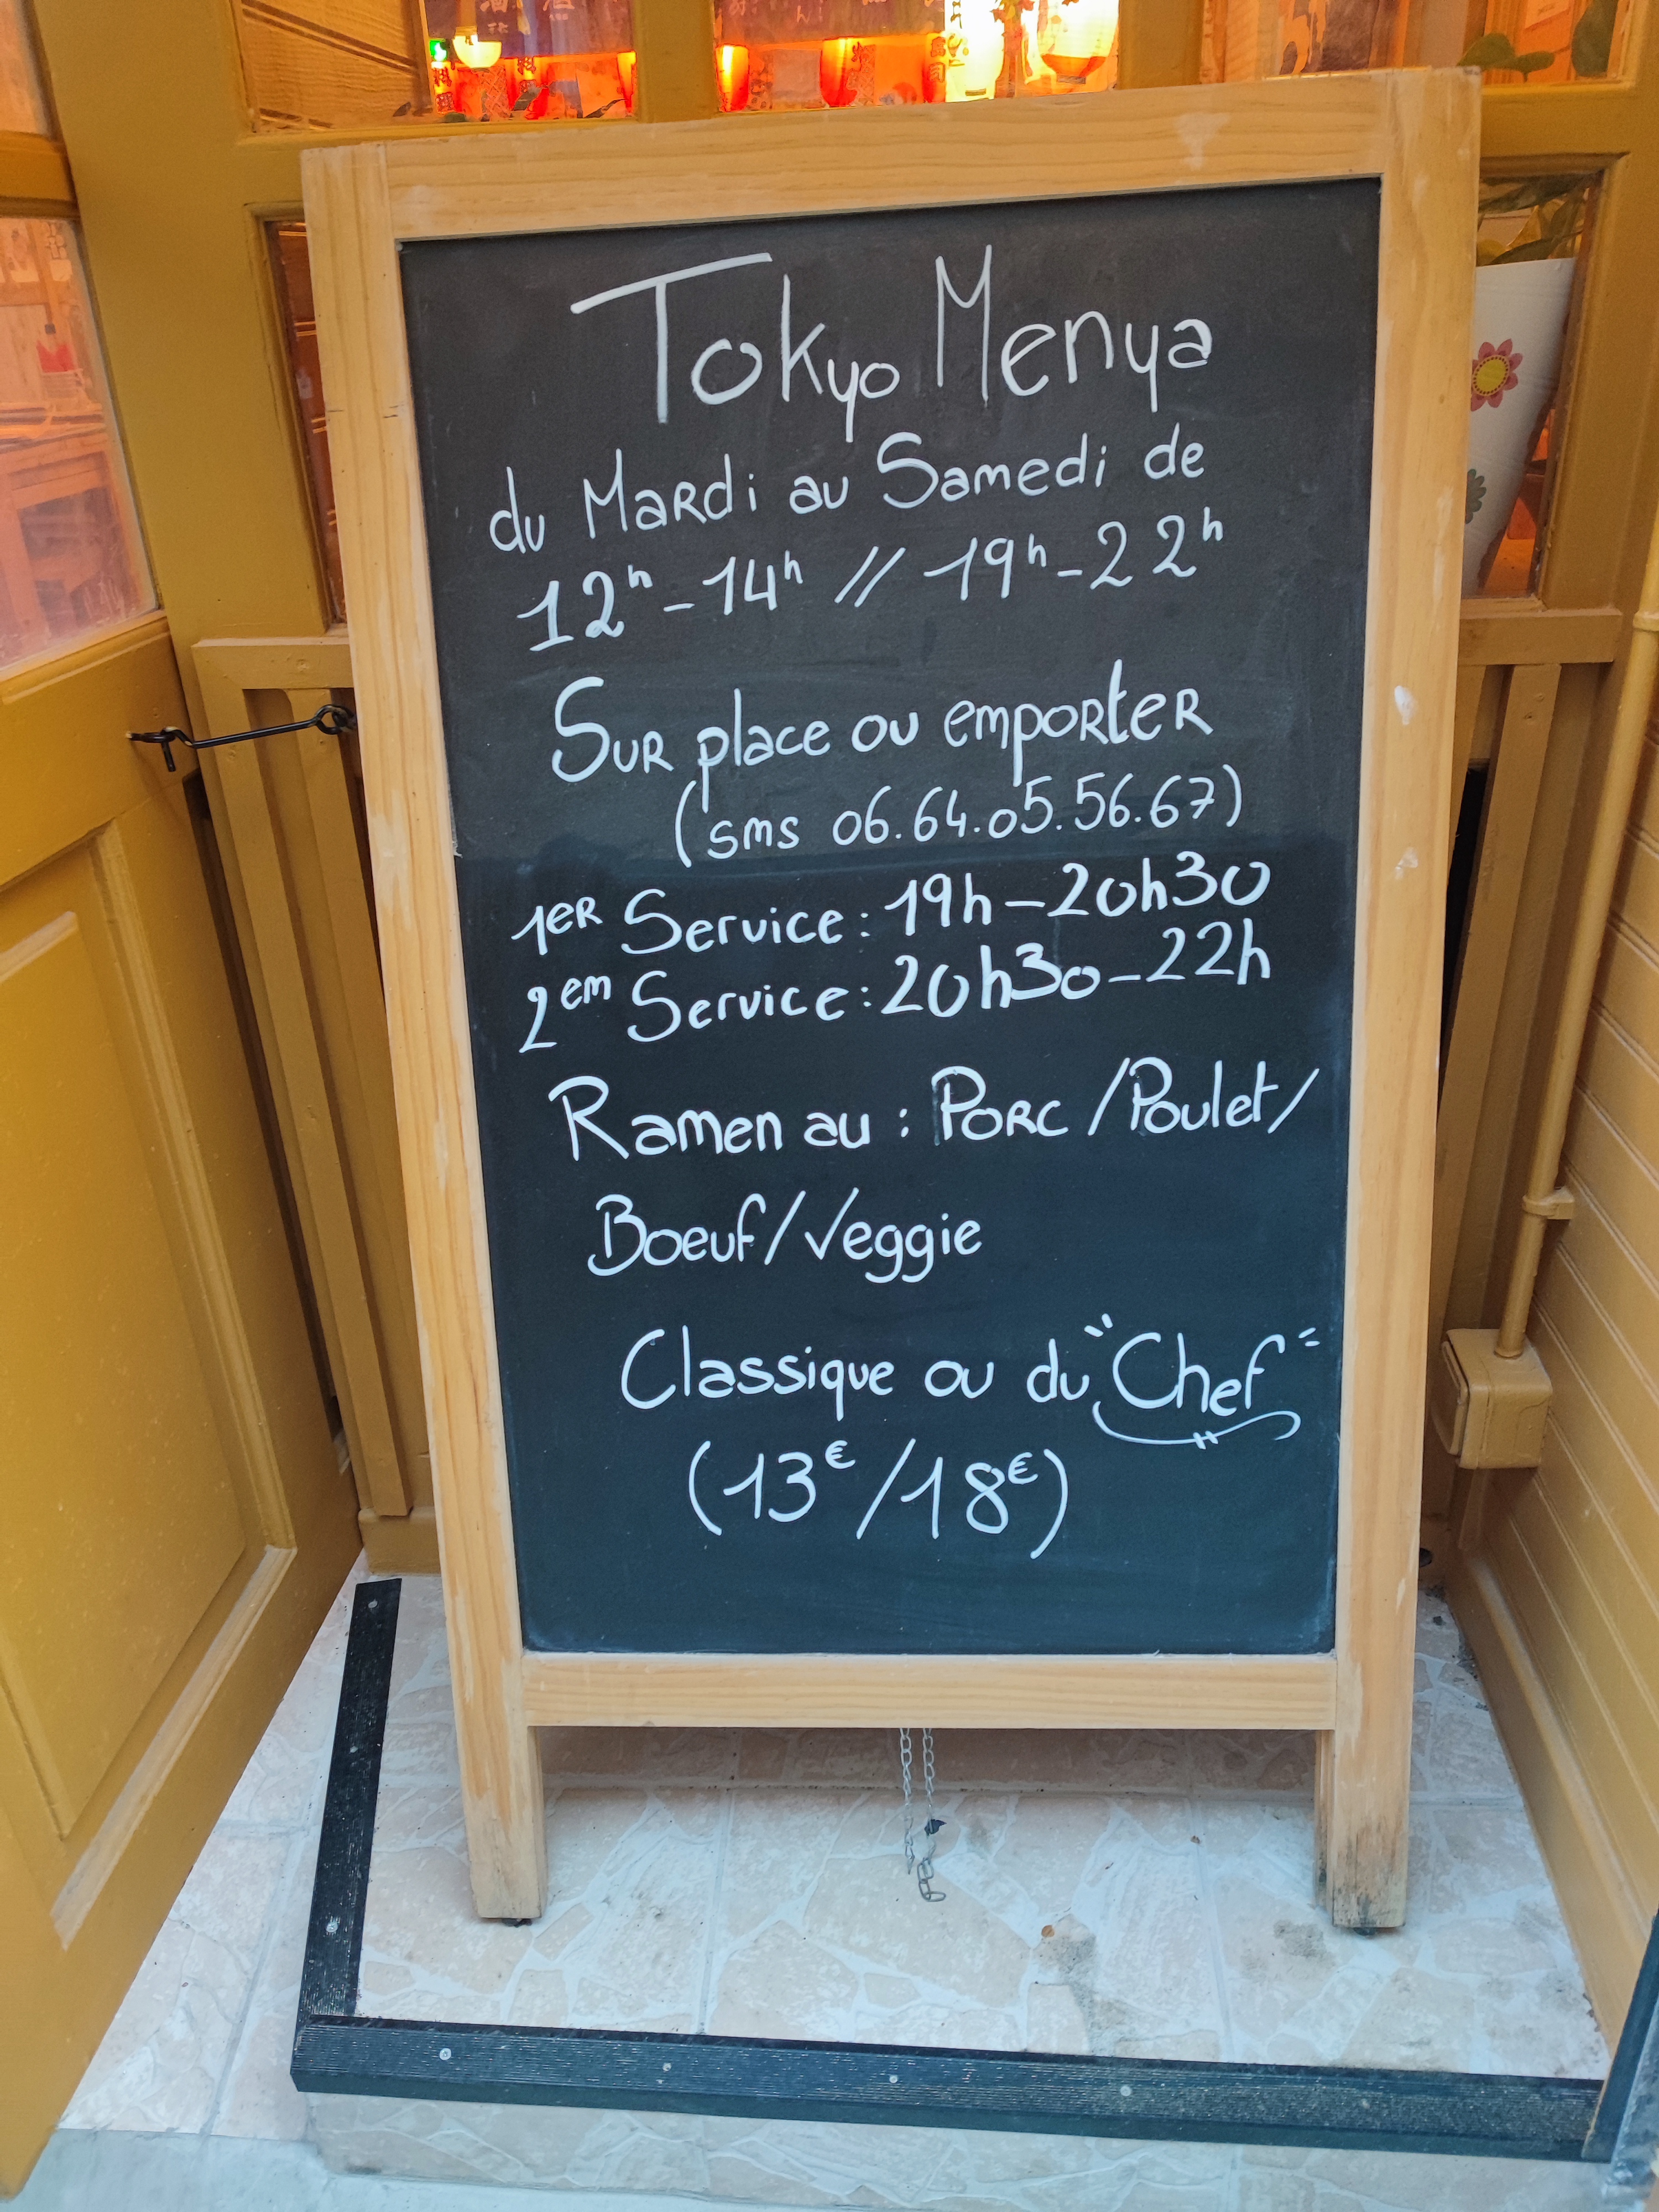 Tokyo Menya
du Mardi au Samedi de
12h-14h // 19h-22h
Sur place ou emporter
(sms 06.64.05.56.67)
1er Service: 19h-20h30
2em Service: 20h30-22h
Ramen au : Porc /Poulet/
Boeuf/Veggie
Classique ou du "Chef"
(13€/18€)